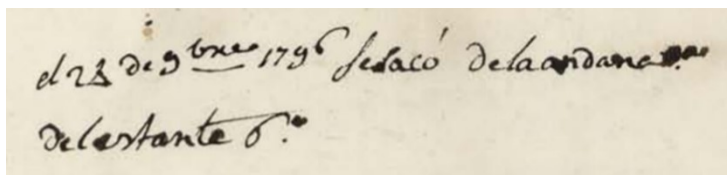 el 23 de 9bre 1796 se sacó de la andana
del estante 6.º